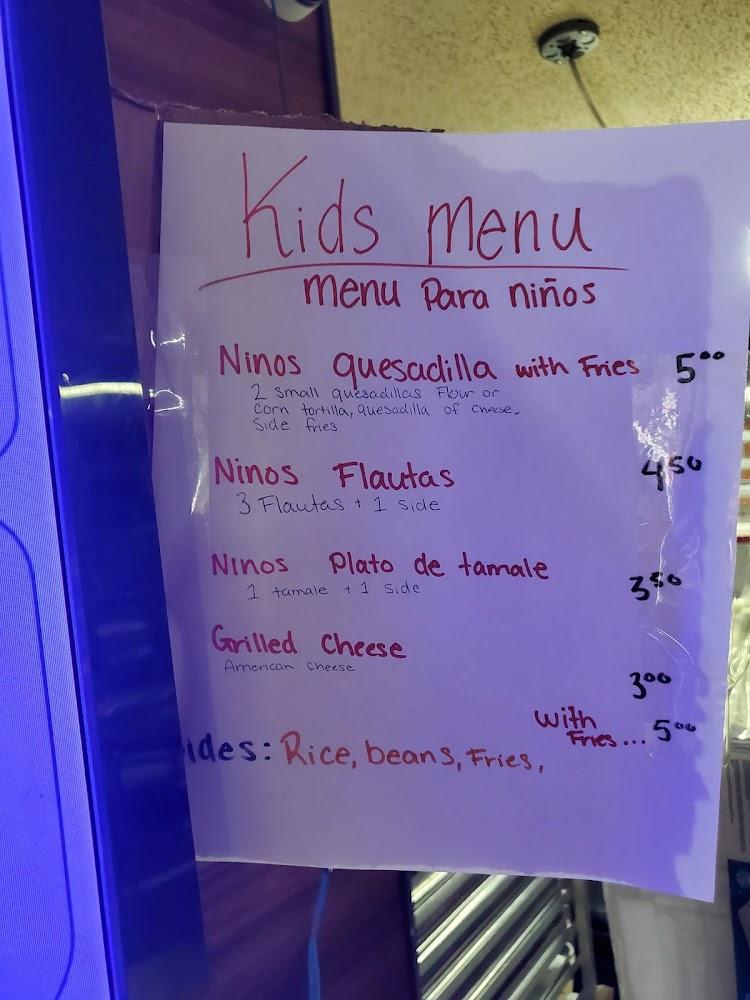 Kids menu
menu Para niños
Ninos quesadilla with Fries 5⁰⁰
2 small quesadillas Flour or
corn tortilla, quesadilla of cheese.
Side fries
Ninos Flautas 4⁵⁰
3 Flautas + 1 side
Ninos Plato de tamale 3⁵⁰
1 tamale + 1 side
Grilled Cheese
American cheese
3⁰⁰
with
Fries... 5⁰⁰
ides: Rice, beans, Fries,